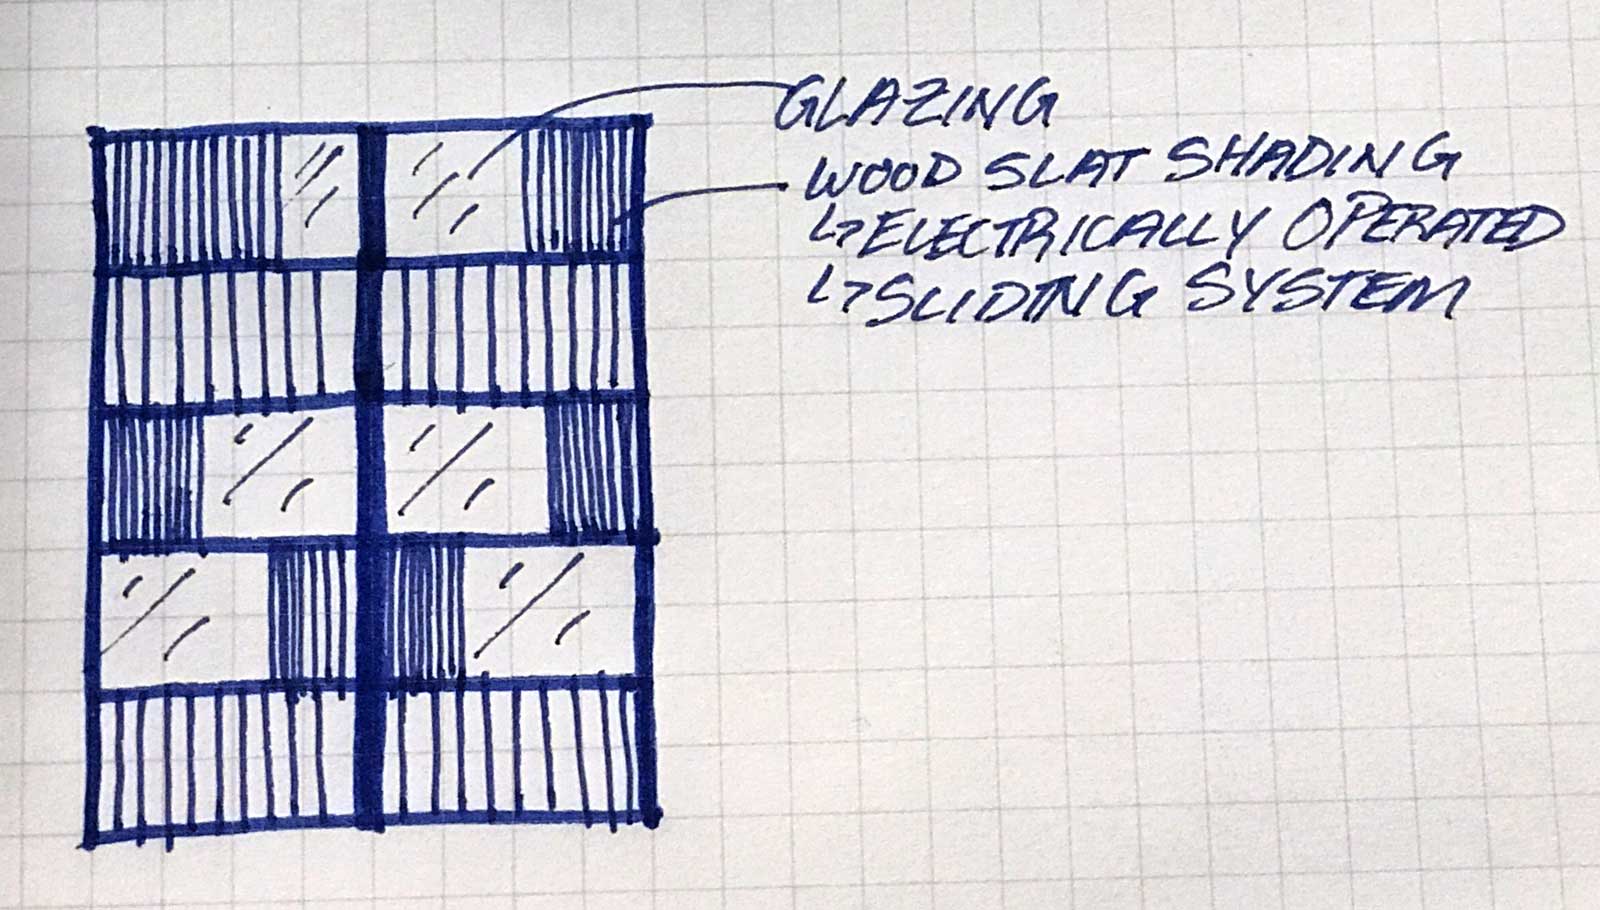 GLAZING
WOOD SLAT SHADING
↳ELECTRICALLY OPERATED
↳SLIDING SYSTEM